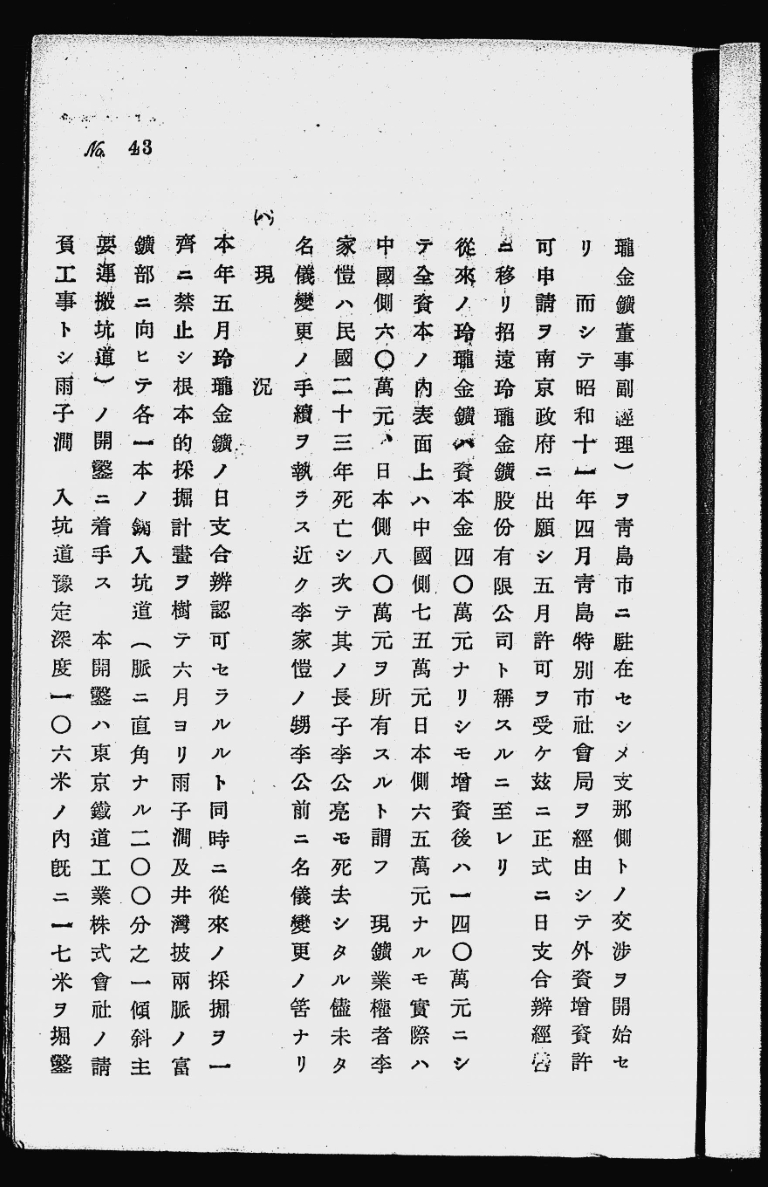 No. 43
瓏金鑛董事副經理)ヲ靑島市ニ駐在セシメ支那側トノ交涉ヲ開始セ
リ 而シテ昭和十一年四月靑島特別市社會局ヲ經由シテ外資增資許
可申請ヲ南京政府ニ出願シ五月許可ヲ受ケ玆ニ正式ニ日支合辦經營
ニ移リ招遠玲瓏金鑛股份有限公司ト稱スルニ至レリ
從來ノ玲瓏金鑛ハ資本金四〇萬元ナリシモ增資後ハ一四〇萬元ニシ
テ全資本ノ內表面上ハ中國側七五萬元日本側六五萬元ナルモ實際ハ
中國側六〇萬元、日本側八〇萬元ヲ所有スルト謂フ 現鑛業權者李
家愷ハ民國二十三年死亡シ次テ其ノ長子李公亮モ死去シタル儘未タ
名儀變更ノ手續ヲ執ラス近ク李家愷ノ甥李公前ニ名儀變更ノ筈ナリ
(ハ) 現 況
本年五月玲瓏金鑛ノ日支合辦認可セラルルト同時ニ從來ノ採掘ヲ一
齊ニ禁止シ根本的採掘計畫ヲ樹テ六月ヨリ雨子澗及井灣披兩脈ノ富
鑛部ニ向ヒテ各一本ノ鍋入坑道(脈ニ直角ナル二〇〇分之一傾斜主
要運搬坑道)ノ開鑿ニ着手ス 本開鑿ハ東京鐵道工業株式會社ノ請
負工事トシ雨子澗 入坑道豫定深度一〇六米ノ內旣ニ一七米ヲ掘鑿